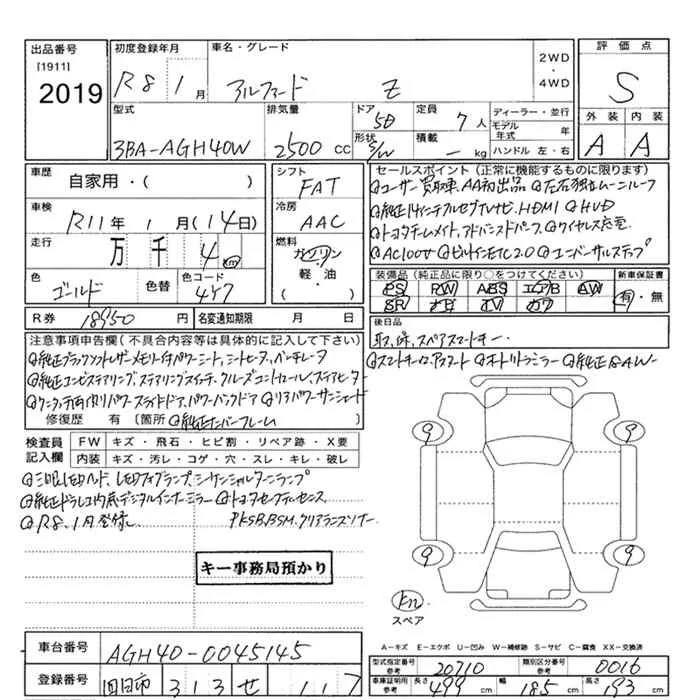 出品番号 [1911] 2019
初度登録年月 R8 1 月
車名・グレード アルファード Z
2WD・4WD
評価点 S
型式 3BA-AGH40W
排気量 2500 cc
ドア 5D
形状 S/W
定員 7 人
積載 - kg
ディーラー・並行
モデル年式 年
ハンドル 左・右
外装 A
内装 A
車歴 自家用・( )
車検 R11 年 1 月 (14日)
走行 万 千 4 km
色 ゴールド
色替
色コード 4Y7
シフト FAT
冷房 AAC
燃料 ガソリン・軽・油・( )
セールスポイント (正常に機能するものに限ります)
ユーザー買取車、AA初出品 左右独立ムーンルーフ
純正14インテフルセグTVナビ、HDMI HUD
トヨタチームメイト,アドバンスドパーク、ワイヤレス充電
AC100V ビルトインETC2.0 ユニバーサルステップ
装備品 (純正品に限り○をつけてください)
PS PW ABS エアB AW
SR ナビ TV カワ
新車保証書 有・無
R券 18950 円
名変通知期限 月 日
後日品
取, 保, スペアスマートキー.
スマートキー 純正AW
注意事項申告欄 (不具合内容等は具体的に記入して下さい)
純正ブラックソフトレザーメモリー付パワーシート,シートヒータ,ベンチレータ
純正コンビステアリング,ステアリングスイッチ,クルーズコントロール,ステアヒーター
両側パワースライドドア,パワーバックドア リアパワーサンシェード
修復歴 有 [箇所 純正ナンバーフレーム ]
検査員記入欄
FW キズ・飛石・ヒビ割・リペア跡・X要
内装 キズ・汚レ・コゲ・穴・スレ・キレ・破レ
三眼LEDヘッド, LEDフォグランプ,シーケンシャルターンランプ
純正ドラレコ内蔵デジタルインナーミラー トヨタセーフティセンス
R8.1月登録 PKSB.BSM.クリアランスソナー
キー事務局預かり
9 9
9 9
スペア
A-キズ E-エクボ U-凹み W-補修跡 S-サビ C-腐食 XX-交換済
車台番号 AGH40-0045145
登録番号 313 せ 117
型式指定番号 参考 20710
類別区分番号 参考 0016
車庫証明用 参考
長さ 499 cm
幅 185 cm
高さ 193 cm